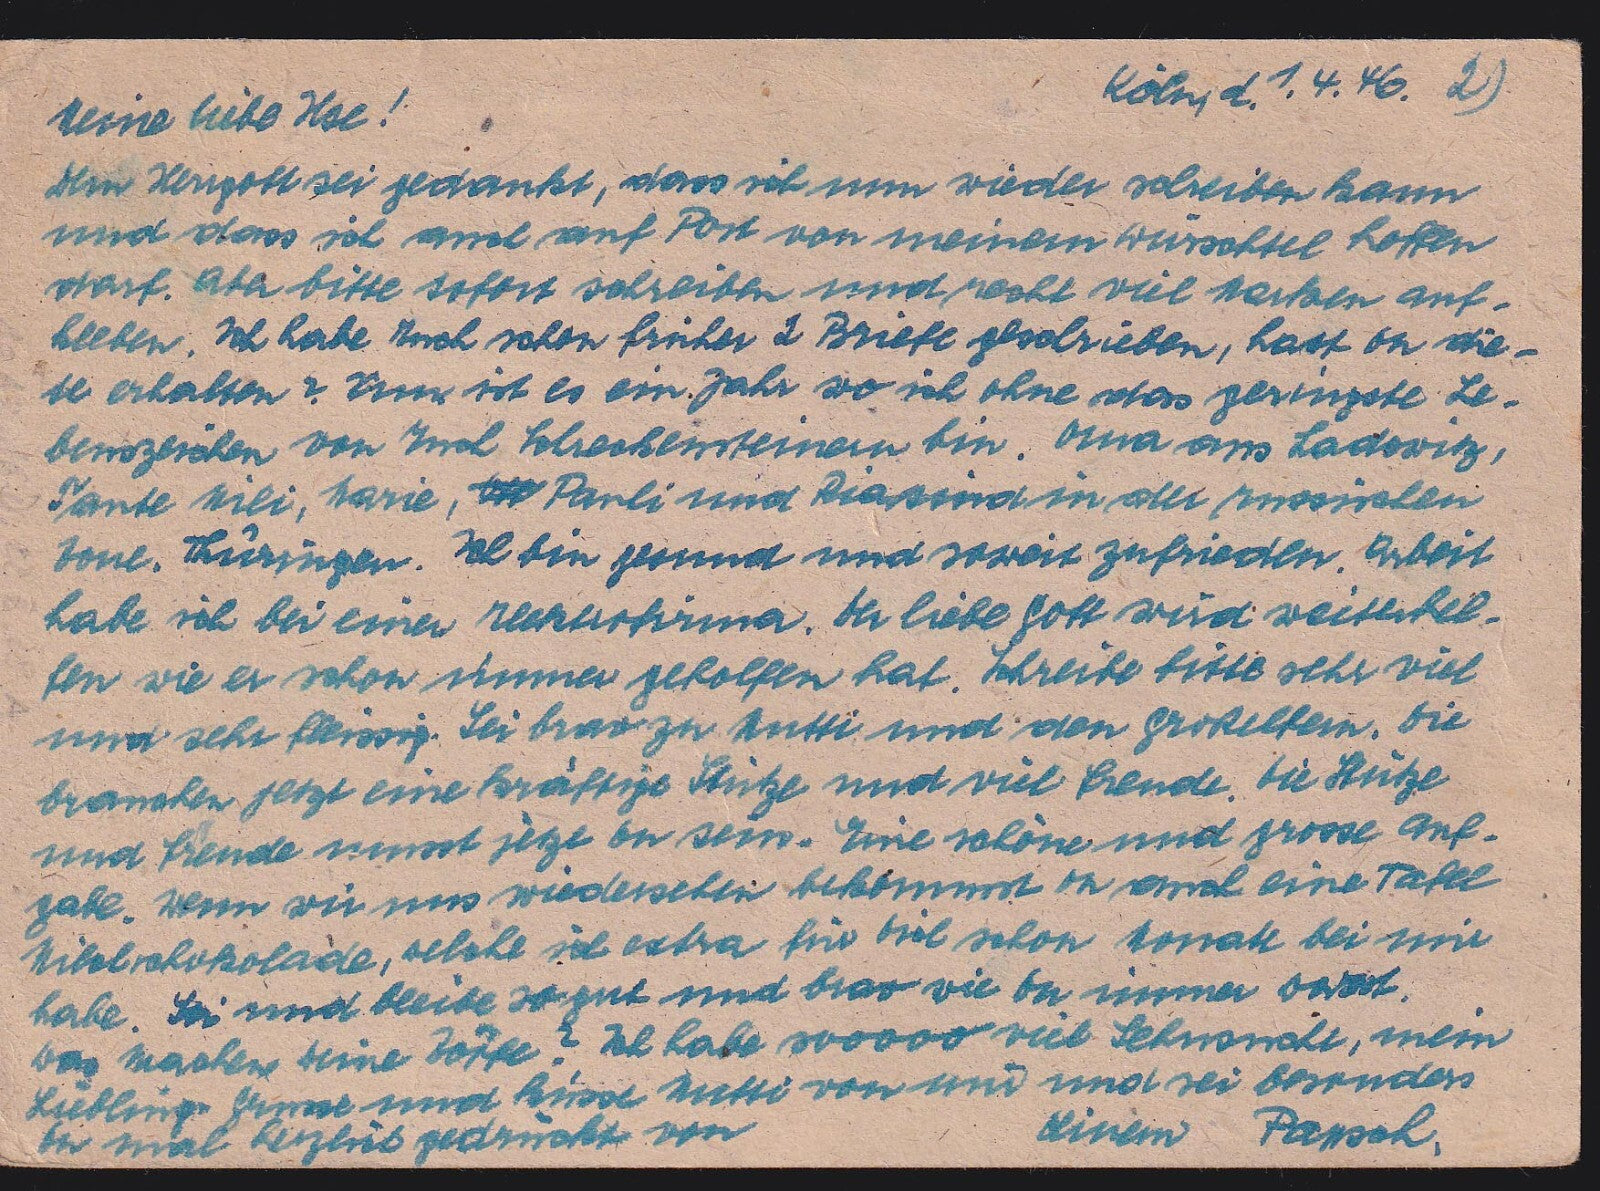 Köln, d. 1. 4. 46. 2)
Meine liebe Ilse!
Dem Herrgott sei gedankt, dass ich nun wieder schreiben kann
und dass ich auch auf Post von meinem Würschtel hoffen
darf. Aber bitte sofort schreiben und recht viel Marken auf-
kleben. Ich habe Euch schon früher 2 Briefe geschrieben, hast Du die-
se erhalten? Nun ist es ein Jahr wo ich ohne das geringste Le-
benszeichen von Euch Schreckensteinern bin. Oma aus Ladowitz,
Tante Mili, Marie, Pauli und Ria sind in der russischen
Zone, Thüringen. Ich bin gesund und soweit zufrieden. Arbeit
habe ich bei einer Elektrofirma. Der liebe Gott wird weiterhel-
fen wie er schon immer geholfen hat. Schreibe bitte sehr viel
und sehr fleissig. Sei brav zu Mutti und den Großeltern. Die
brauchen jetzt eine kräftige Stütze und viel Freude. Die Stütze
und Freude musst jetzt Du sein. Eine schöne und grosse Auf-
gabe. Wenn wir uns wiedersehen bekommst Du auch eine Tafel
Milchschokolade, welche ich extra für Dich schon Monate bei mir
habe. Sei und bleibe so gut und brav wie Du immer warst.
Was machen Deine Zöpfe? Ich habe sooooo viel Sehnsucht, mein
Liebling. Grüsse und küsse Mutti von mir und sei besonders
mal herzlich gedrückt von Deinem Pappsch.